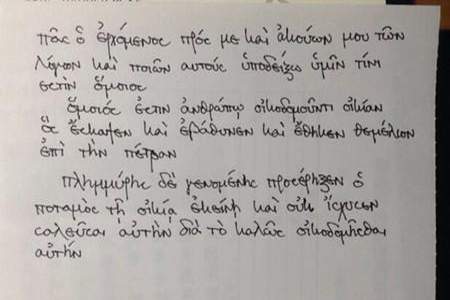 πᾶς ὁ ἐρχόμενος πρός με καὶ ἀκούων μου τῶν
λόγων καὶ ποιῶν αὐτούς ὑποδείξω ὑμῖν τίνι
ἐστὶν ὅμοιος
ὅμοιός ἐστιν ἀνθρώπῳ οἰκοδομοῦντι οἰκίαν
ὃς ἔσκαψεν καὶ ἐβάθυνεν καὶ ἔθηκεν θεμέλιον
ἐπὶ τὴν πέτραν
πλημμύρης δὲ γενομένης προσέρηξεν ὁ
ποταμὸς τῇ οἰκίᾳ ἐκείνῃ καὶ οὐκ ἴσχυσεν
σαλεῦσαι αὐτὴν διὰ τὸ καλῶς οἰκοδομῆσθαι
αὐτήν